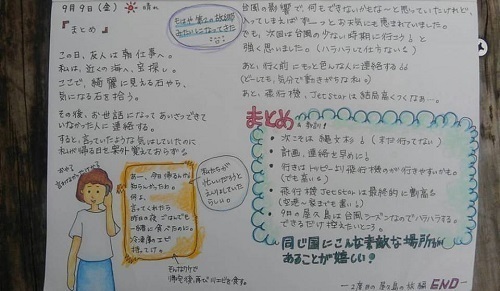 9月9日(金) 晴れ
『まとめ』
もはや第2の故郷
みたいになってきた
この日、友人は朝仕事へ。
私は、近くの海へ、宝探し。
ここで、綺麗に見える石やら、
気になる石を拾う。
その後、お世話になって あいさつできて
いなかった人に連絡する。
すると、言っていたような気はしていたのに
私が帰る日を案外覚えておらず
あー、今日帰るんか
知らんかったわ。
何よ、
言ってくれたら
昨日の夜 ごはんでも
一緒に食べたのに。
冷凍庫のエビ
持ってけ。
私たちが
忙しいだろうと
えんりょしていた
らしい。
そんなわけで
帰宅後、再びバエビを食す。
台風の影響で、何もできないかもな〜と思っていたけれど、
入ってしまえば ずーっとお天気にも恵まれていました。
でも、次回は台風の少ない時期に行こう と
強く思いました。(ハラハラして仕方ない)
あと、行く前に もっと色んな人に連絡する
(どーしても、気分で動きがちな私。)
あと、飛行機、Jetstarは結局高くつくなぁ…。
まとめ & 教訓!
• 次こそは縄文杉 (まだ行ってない)
• 計画、連絡を早めに
• 行きはトッピーより飛行機のが行きやすいかも
(でも高い)
• 飛行機 Jetstarは最終的に割高
(空港〜家までも遠い)
• 9月の屋久島は台風シーズンなのでハラハラする。
できるだけ控えたいところ。
同じ国にこんな素敵な場所が
あることが嬉しい!
― 2度目の屋久島の旅編 END ―